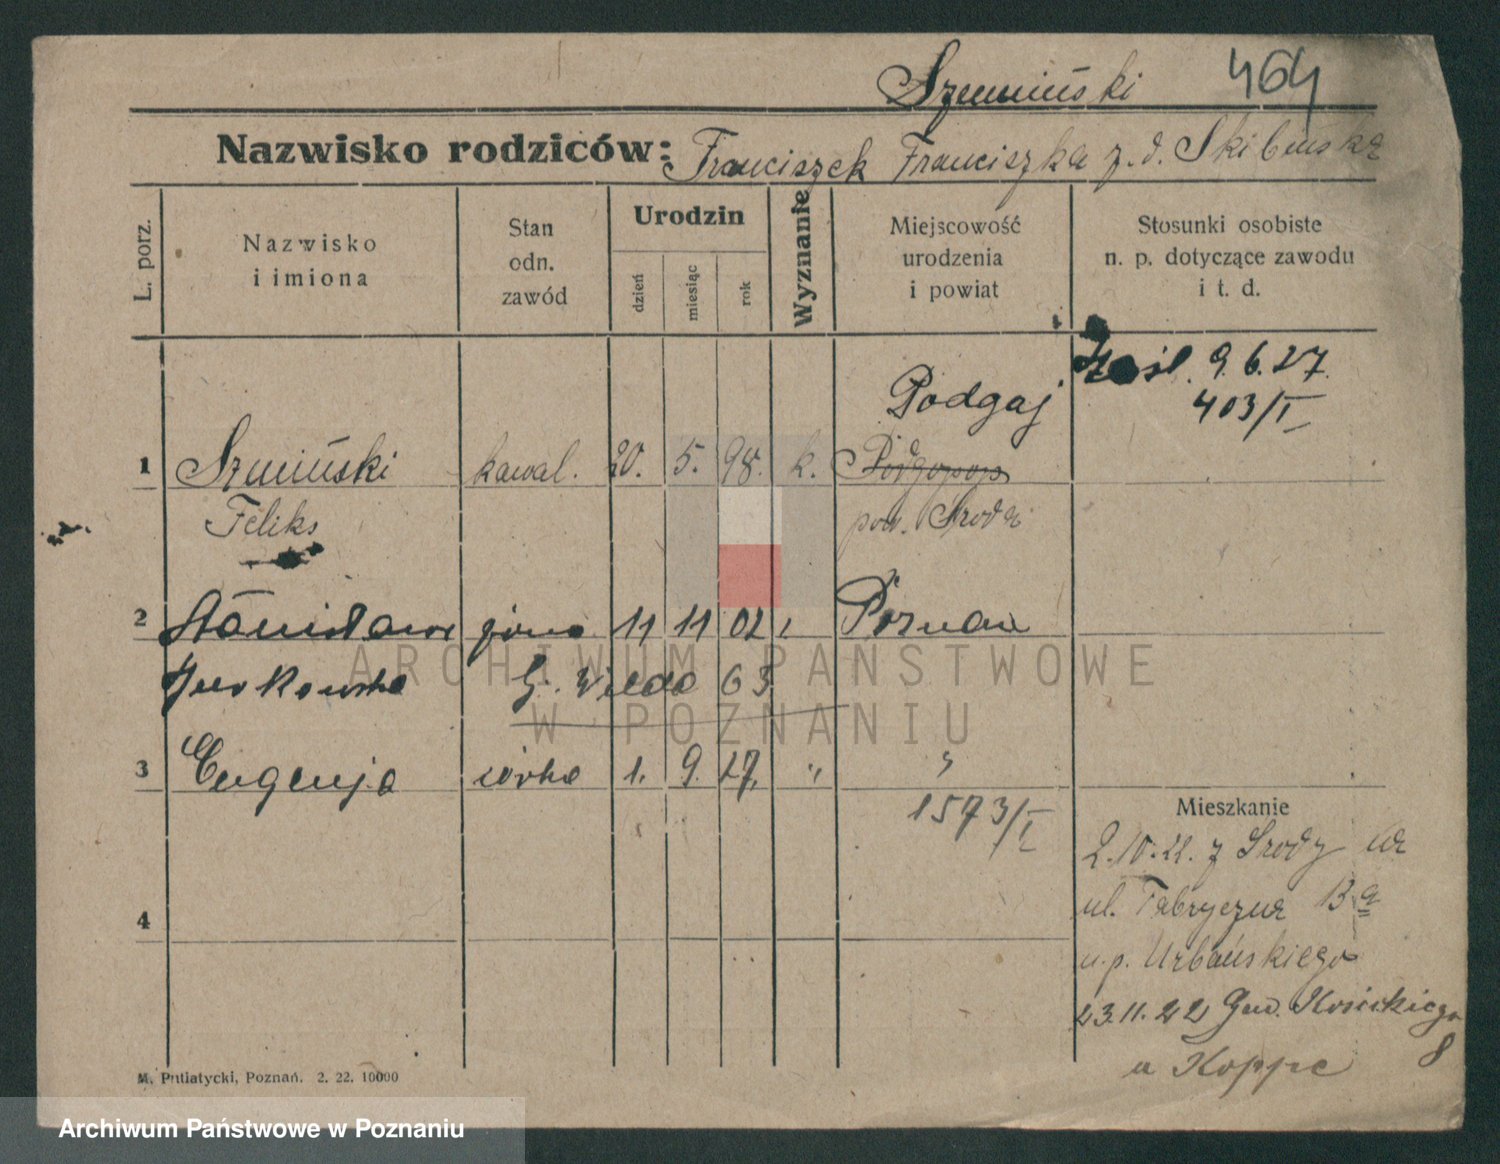 Szemiński 464
Nazwisko rodziców: Franciszek Franciszka z. d. Skibińska
L. porz.
Nazwisko
i imiona
Stan
odn.
zawód
Urodzin
dzień
miesiąc
rok
Wyznanie
Miejscowość
urodzenia
i powiat
Stosunki osobiste
n. p. dotyczące zawodu
i t. d.
9.6.27
403/I
Podgaj
1 Szmiński kawal. 20. 5. 98. k.
Feliks pow. Środa
2 Stanisława żona 11 11 02 Poznań
G. Wilda 63
3 Eugenja córka 1. 9. 27. "
1573/I
Mieszkanie
2.10.22. z Środy na
ul. Fabryczna 13a
u. p. Urbańskiego
4
23.11.22 Gen. Kosińskiego
8
u Koppe
M. Putiatycki, Poznań. 2. 22. 10000
ARCHIWUM PAŃSTWOWE
W POZNANIU
Archiwum Państwowe w Poznaniu